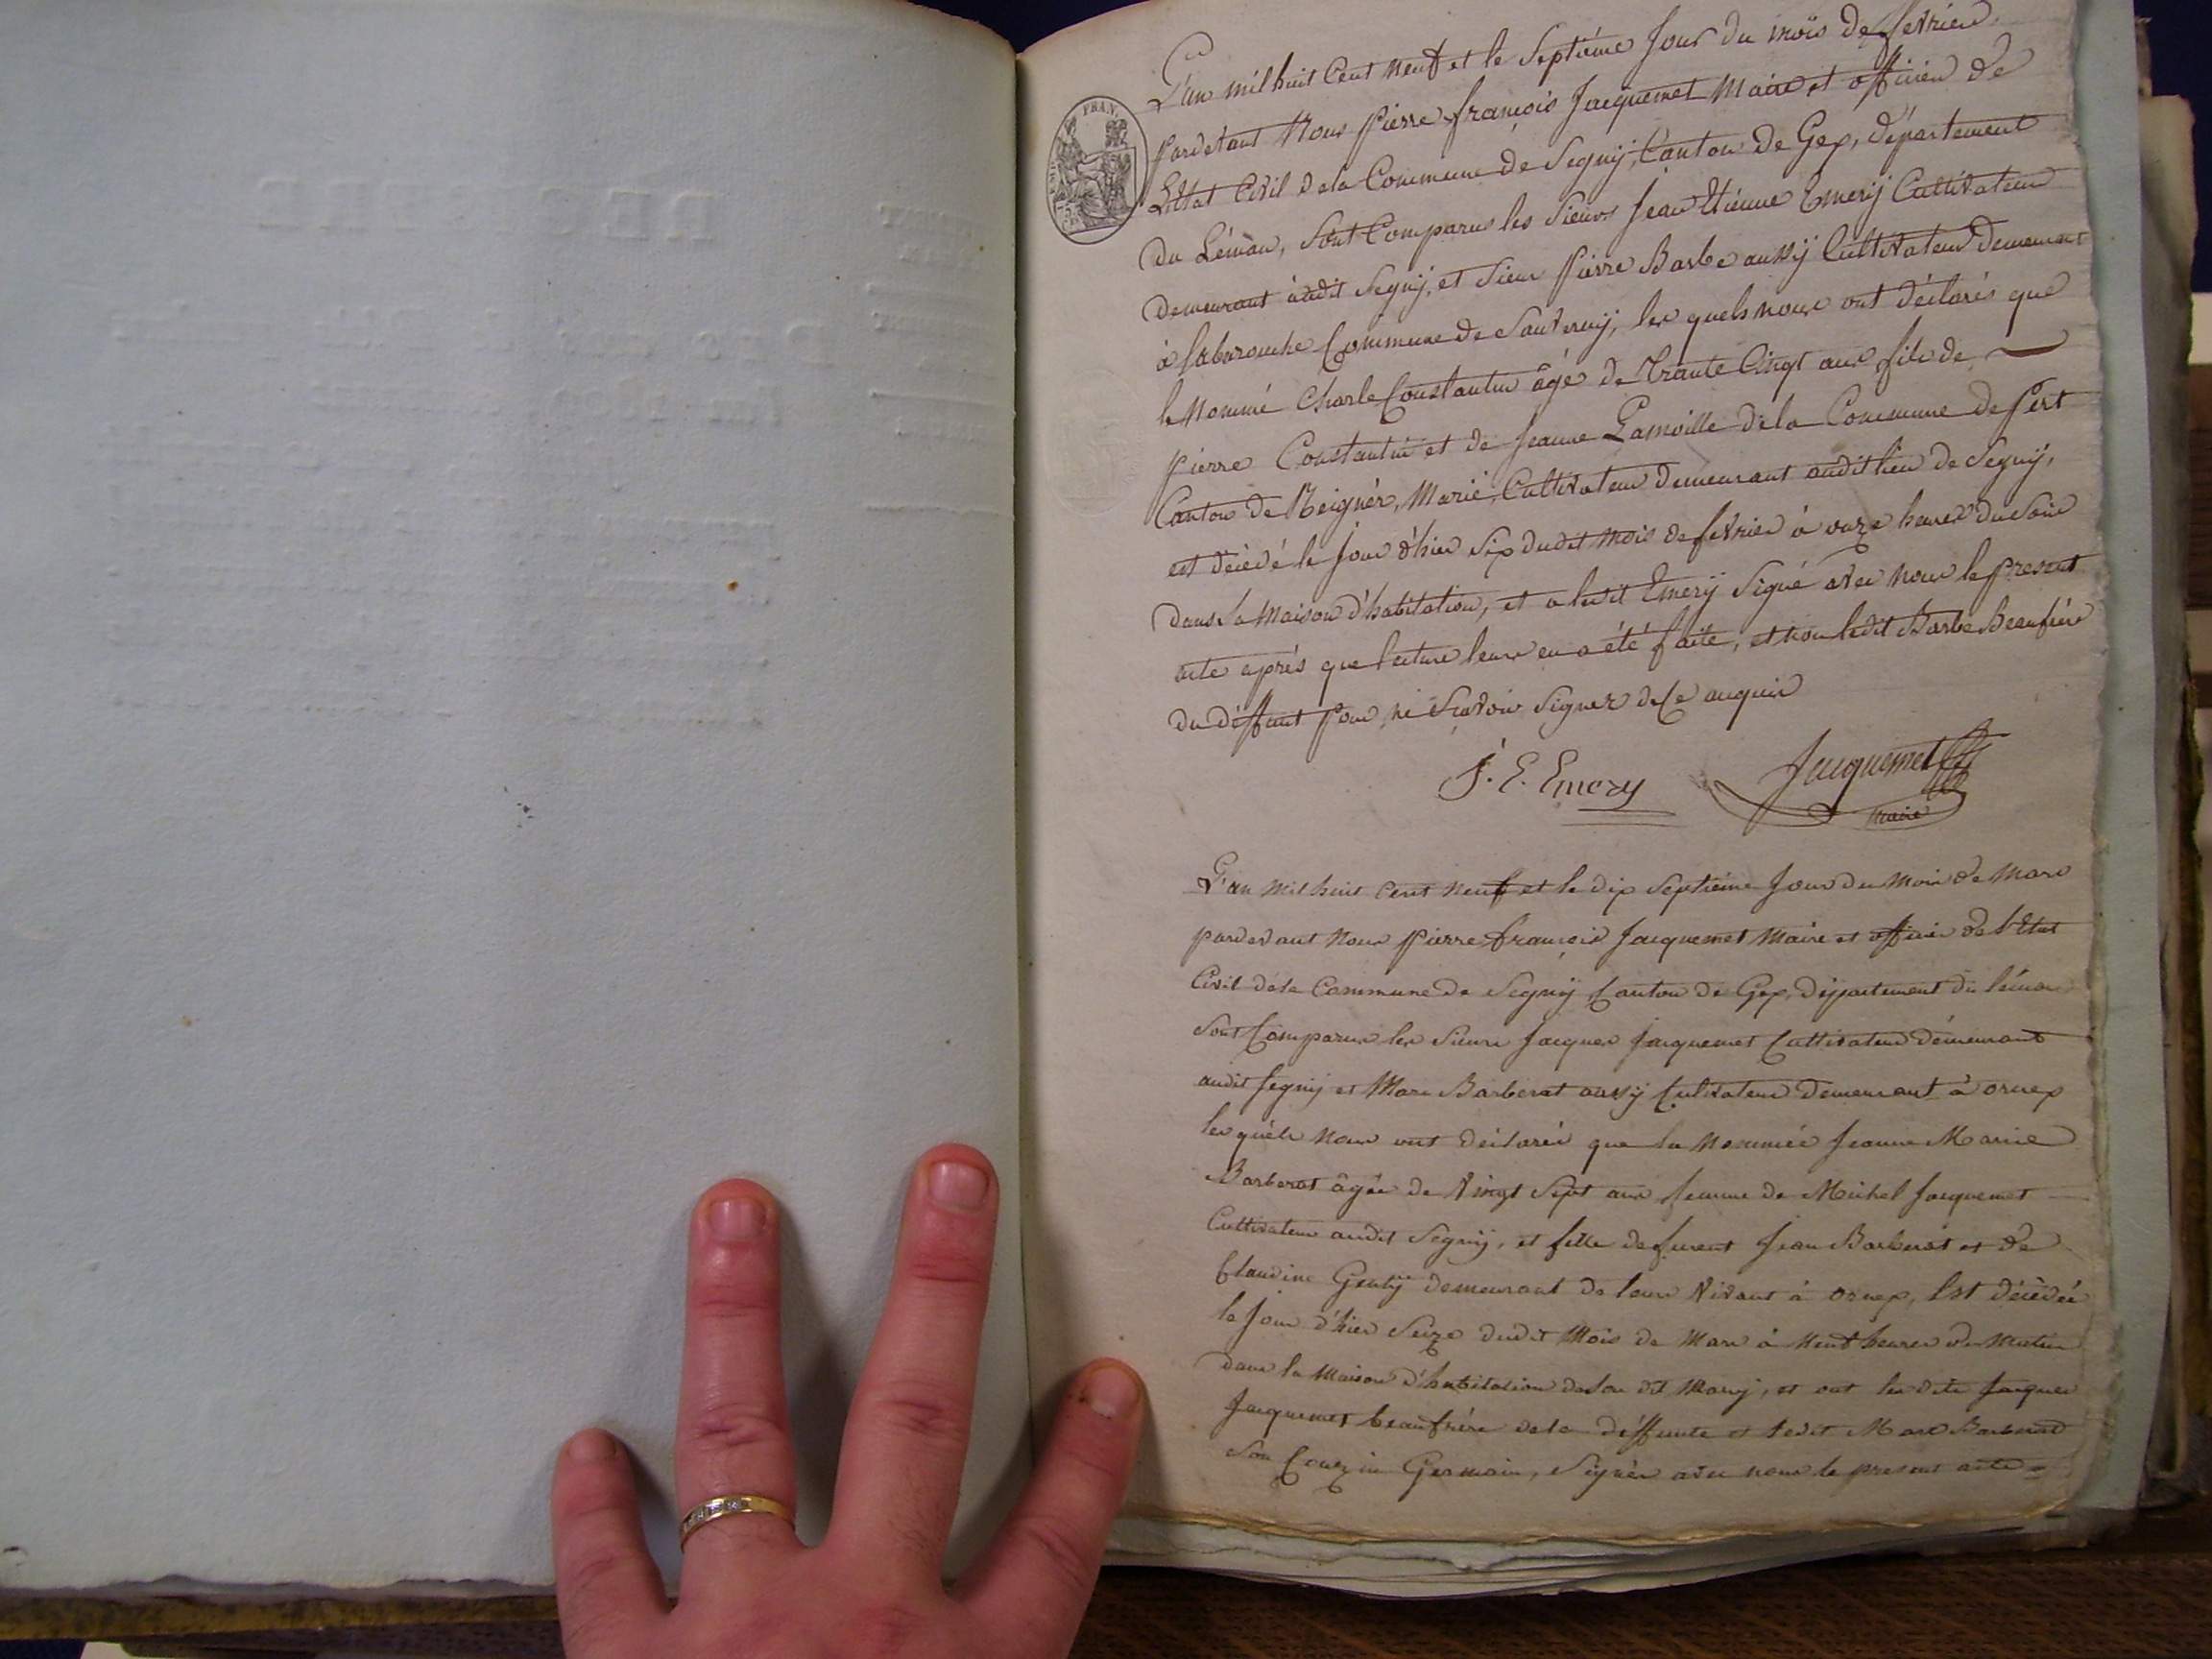 FRAN.
EMP.
L'an mil huit Cent neuf et le Septiéme Jour du mois de fevrier
pardevant Nous Pierre françois Jacquemet Maire et officier de
L'Ettat Civil de la Commune de Segnÿ, Canton de Gex, département
du Léman, sont Comparus les Sieurs Jean Etienne Emerÿ Cultivateur
demeurant audit Segnÿ, et Sieur Pierre Barbe aussÿ Cultivateur demeurant
à Commune de Sauvernÿ, les quels nous ont déclarés que
le Nommé Charle Constantin âgé de Trante Cinq ans fils de
Pierre Constantin et de Jeanne de la Commune de Pert
Canton de Reignér, Marié, Cultivateur demeurant audit lieu de Segnÿ,
est décédé le Jour d'hier Six dudit mois de fevrier à onze heures du Soir
dans sa Maison d'habitation, et a ledit Emerÿ Signé avec nous le present
acte aprés que lecture leurs en a été faite, et non ledit Barbe Beaufrére
du déffunt pour ne Scavoir Signer de Ce enquis
J. E. Emery Jacquemet
maire
L'an mil huit Cent neuf et le dix Septiéme Jour du mois de Mars
pardevant nous Pierre françois Jacquemet Maire et officier de l'Etat
Civil de la Commune de Segnÿ Canton de Gex, département du léman
Sont Comparus les Sieurs Jacques Jacquemet Cultivateur démeurant
audit Segnÿ et Marc Barberat aussÿ Cultivateur demeurant à ornex
les quéls nous ont déclarés que la Nommée Jeanne Marie
Barberat âgée de Vingt Sept ans femme de Michel Jacquemet
Cultivateur audit Segnÿ, et fille de furent Jean Barberat et de
Claudine Gentÿ demeurant de leurs Vivant à ornex, Est décédée
le Jour d'hier Seize dudit Mois de Mars à Neuf heures du Matin
dans la Maison d'habitation de son dit Marÿ, et ont les dits Jacques
Jacquemet beaufrére de la déffunte et ledit Marc Barberat
Son Couzin Germain, Signés avec nous le present acte =